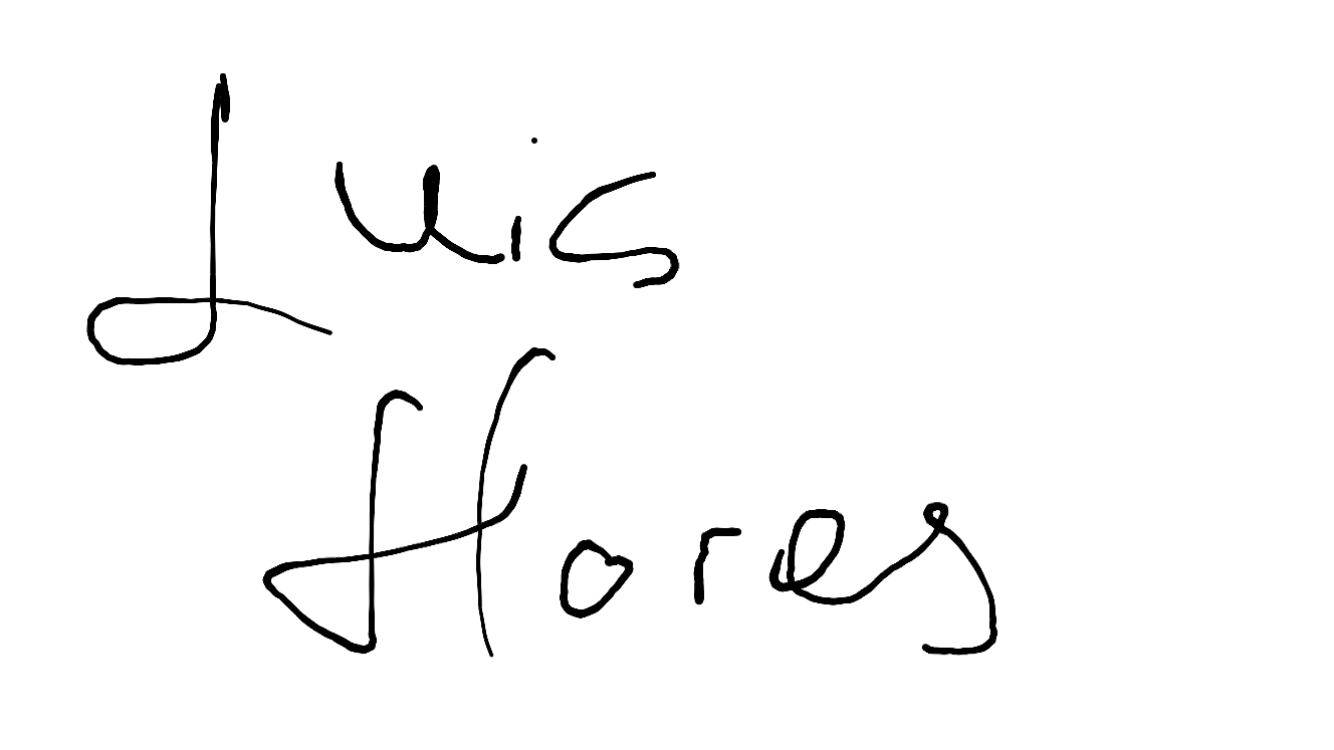 Luis
Hores